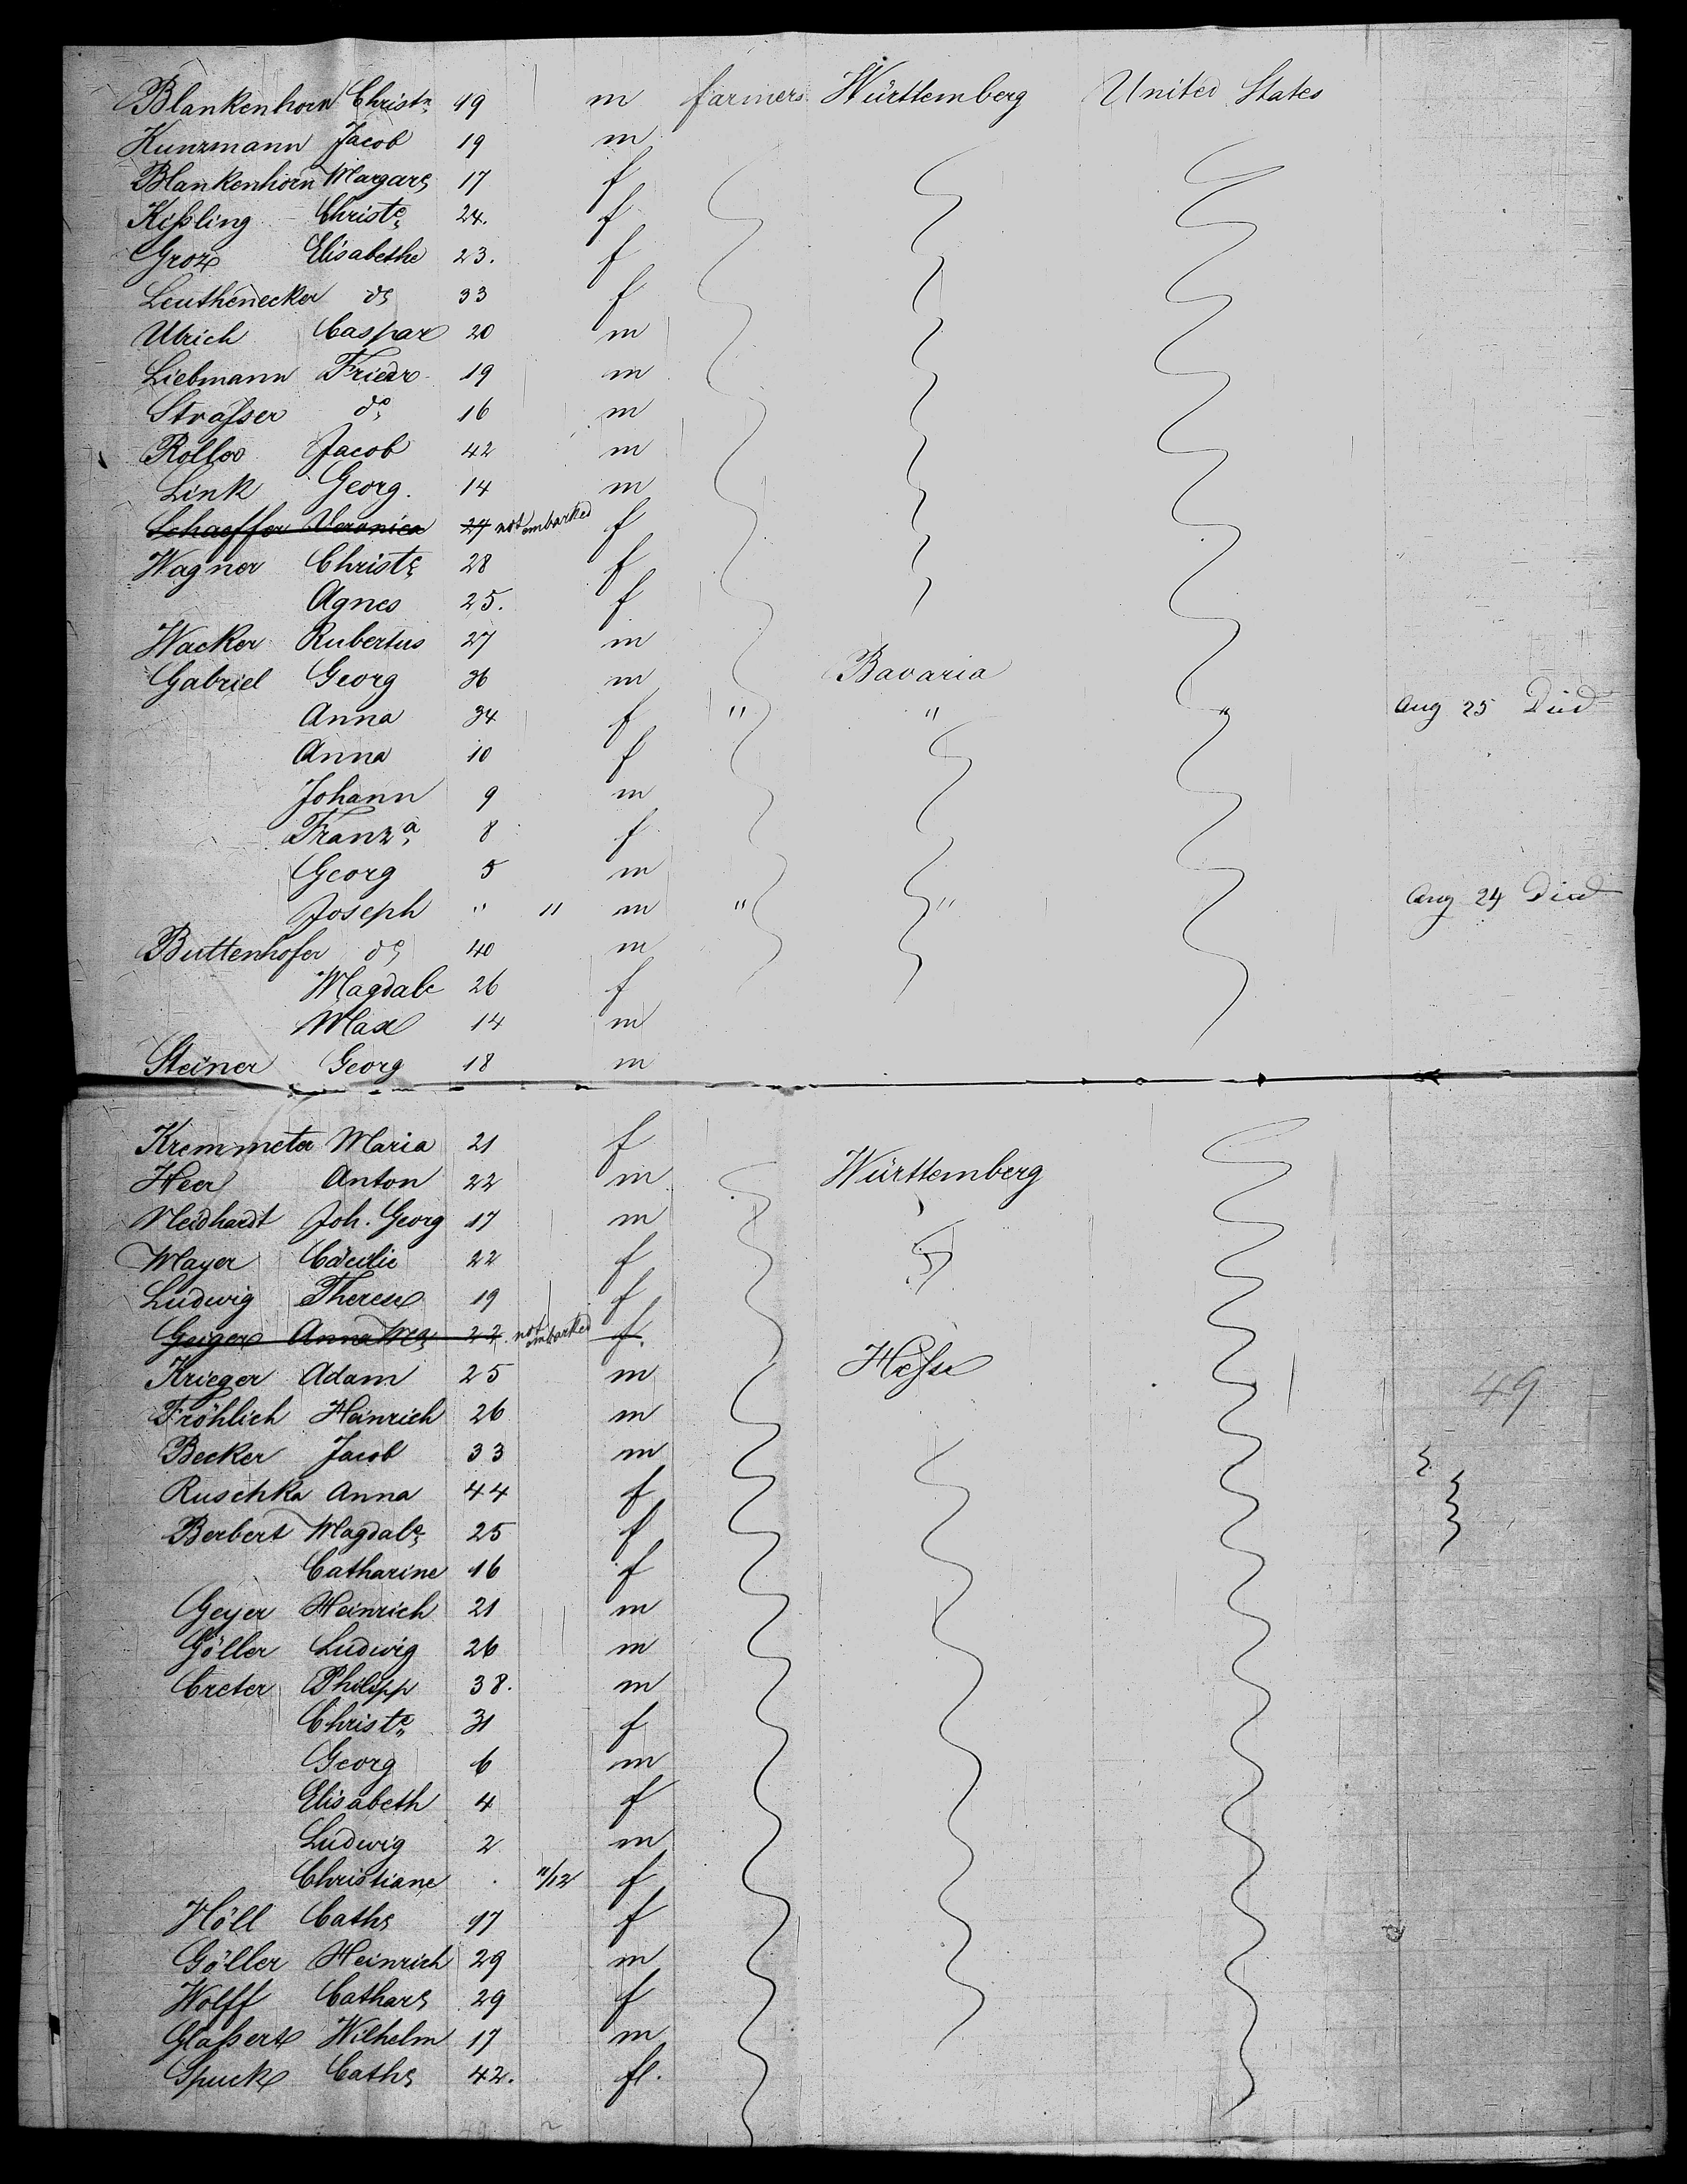 Blankenhorn Christn 19 m farmers Württemberg United States
Kunzmann Jacob 19 m
Blankenhorn Margar 17 f
Kißling Christe 24. f
Groz Elisabethe 23. f
Leuthenecker do 33 f
Ulrich Caspar 20 m
Liebmann Friedr 19 m
Straßer do 16 m
Roller Jacob 42 m
Link Georg. 14 m
Schaeffer Veronica 27 not embarked f
Wagner Christe 28 f
Agnes 25. f
Wacker Rubertus 27 m
Gabriel Georg 36 m Bavaria
Anna 34 f " " " Aug 25 Died
Anna 10 f
Johann 9 m
Franza 8 f
Georg 5 m
Joseph " 11 m " " Aug 24 Died
Buttenhofer do 40 m
Magdale 26 f
Max 14 m
Steiner Georg 18 m
Kremmeter Maria 21 f
Heer Anton 22 m Württemberg
Neidhardt Joh. Georg 17 m
Mayer Cäcilie 22 f
Ludwig Therese 19 f
Geiger Anna Ma 22. not embarked f.
Krieger Adam 25 m Hesse
49
Fröhlich Heinrich 26 m
Becker Jacob 33 m
Ruschka Anna 44 f
Berbert Magdale 25 f
Catharine 16 f
Geyer Heinrich 21 m
Göller Ludwig 26 m
Creter Philipp 38. m
Christe 31 f
Georg 6 m
Elisabeth 4 f
Ludwig 2 m
Christiane . 11/12 f
Höll Cath 17 f
Göller Heinrich 29 m
Wolff Cathar 29 f
Glaßert Wilhelm 17 m
Spuck Cath 42. fl.